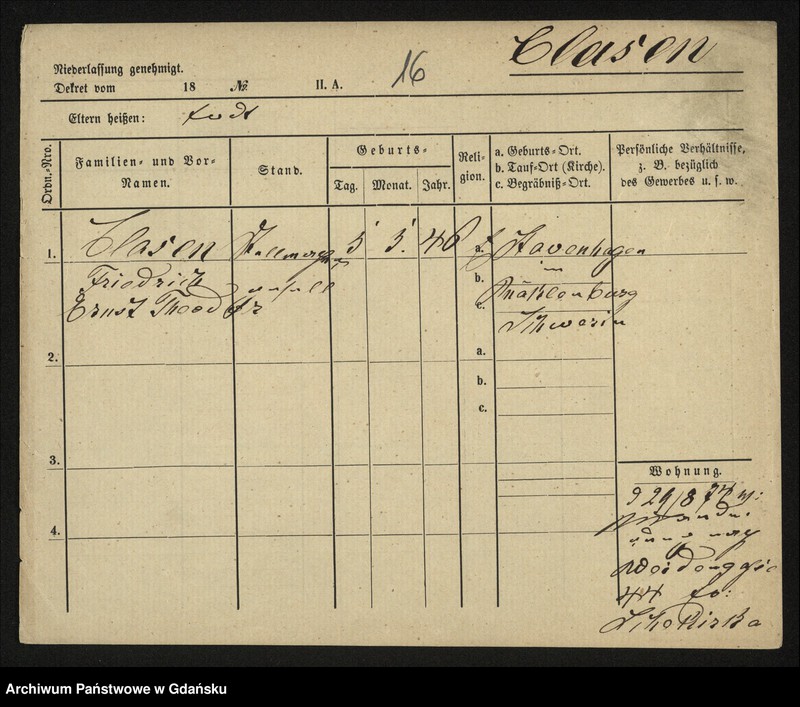 Clasen
Niederlassung genehmigt.
Dekret vom 18 № II. A. 16
Eltern heißen: todt
Ordn.-Nro.
Familien- und Vor-
Namen.
Stand.
Geburts-
Tag. Monat. Jahr.
Reli-
gion.
a. Geburts-Ort.
b. Tauf-Ort (Kirche).
c. Begräbniß-Ort.
Persönliche Verhältnisse,
z. B. bezüglich
des Gewerbes u. s. w.
1. Clasen 5 5. 46 a. Stavenhagen
Friedrich b. in
Ernst Theodor c.
Schwerin
2. a.
b.
c.
3.
Wohnung.
4.
44
Archiwum Państwowe w Gdańsku